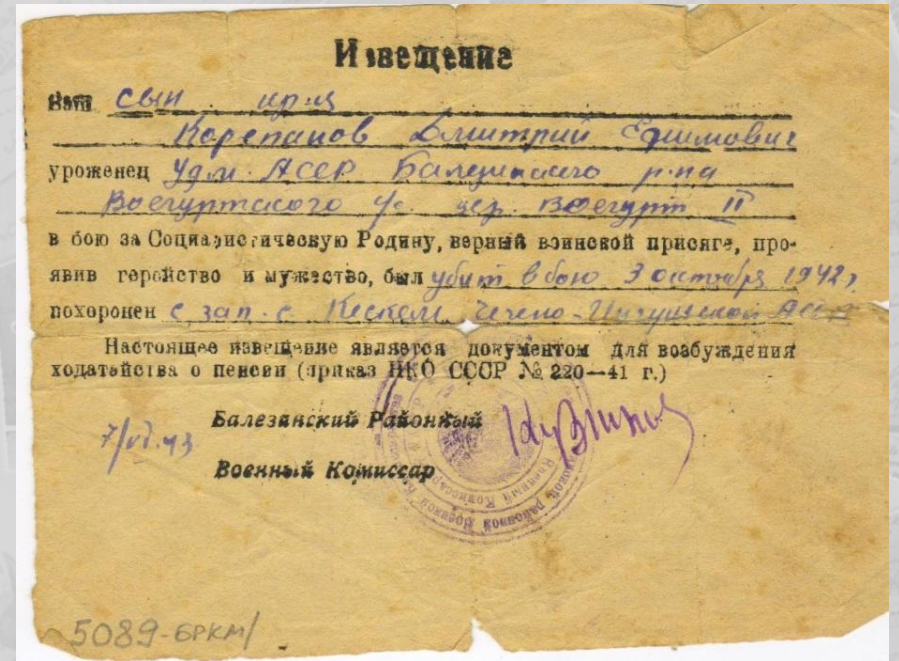 Извещение
Ваш сын кр-ц
Корепанов Дмитрий Ефимович
уроженец Удм. АССР Балезинского р-на
Воегуртского с/с дер. Воегурт II
в бою за Социалистическую Родину, верный воинской присяге, про-
явив геройство и мужество, был убит в бою 3 октября 1942 г.
похоронен с. зап. с. Кескем Чечено-Ингушской АССР
Настоящее извещение является документом для возбуждения
ходатайства о пенсии (приказ НКО СССР № 220—41 г.)
Балезинский Районный
7/VI.43
Военный Комиссар
5089-БРКМ/